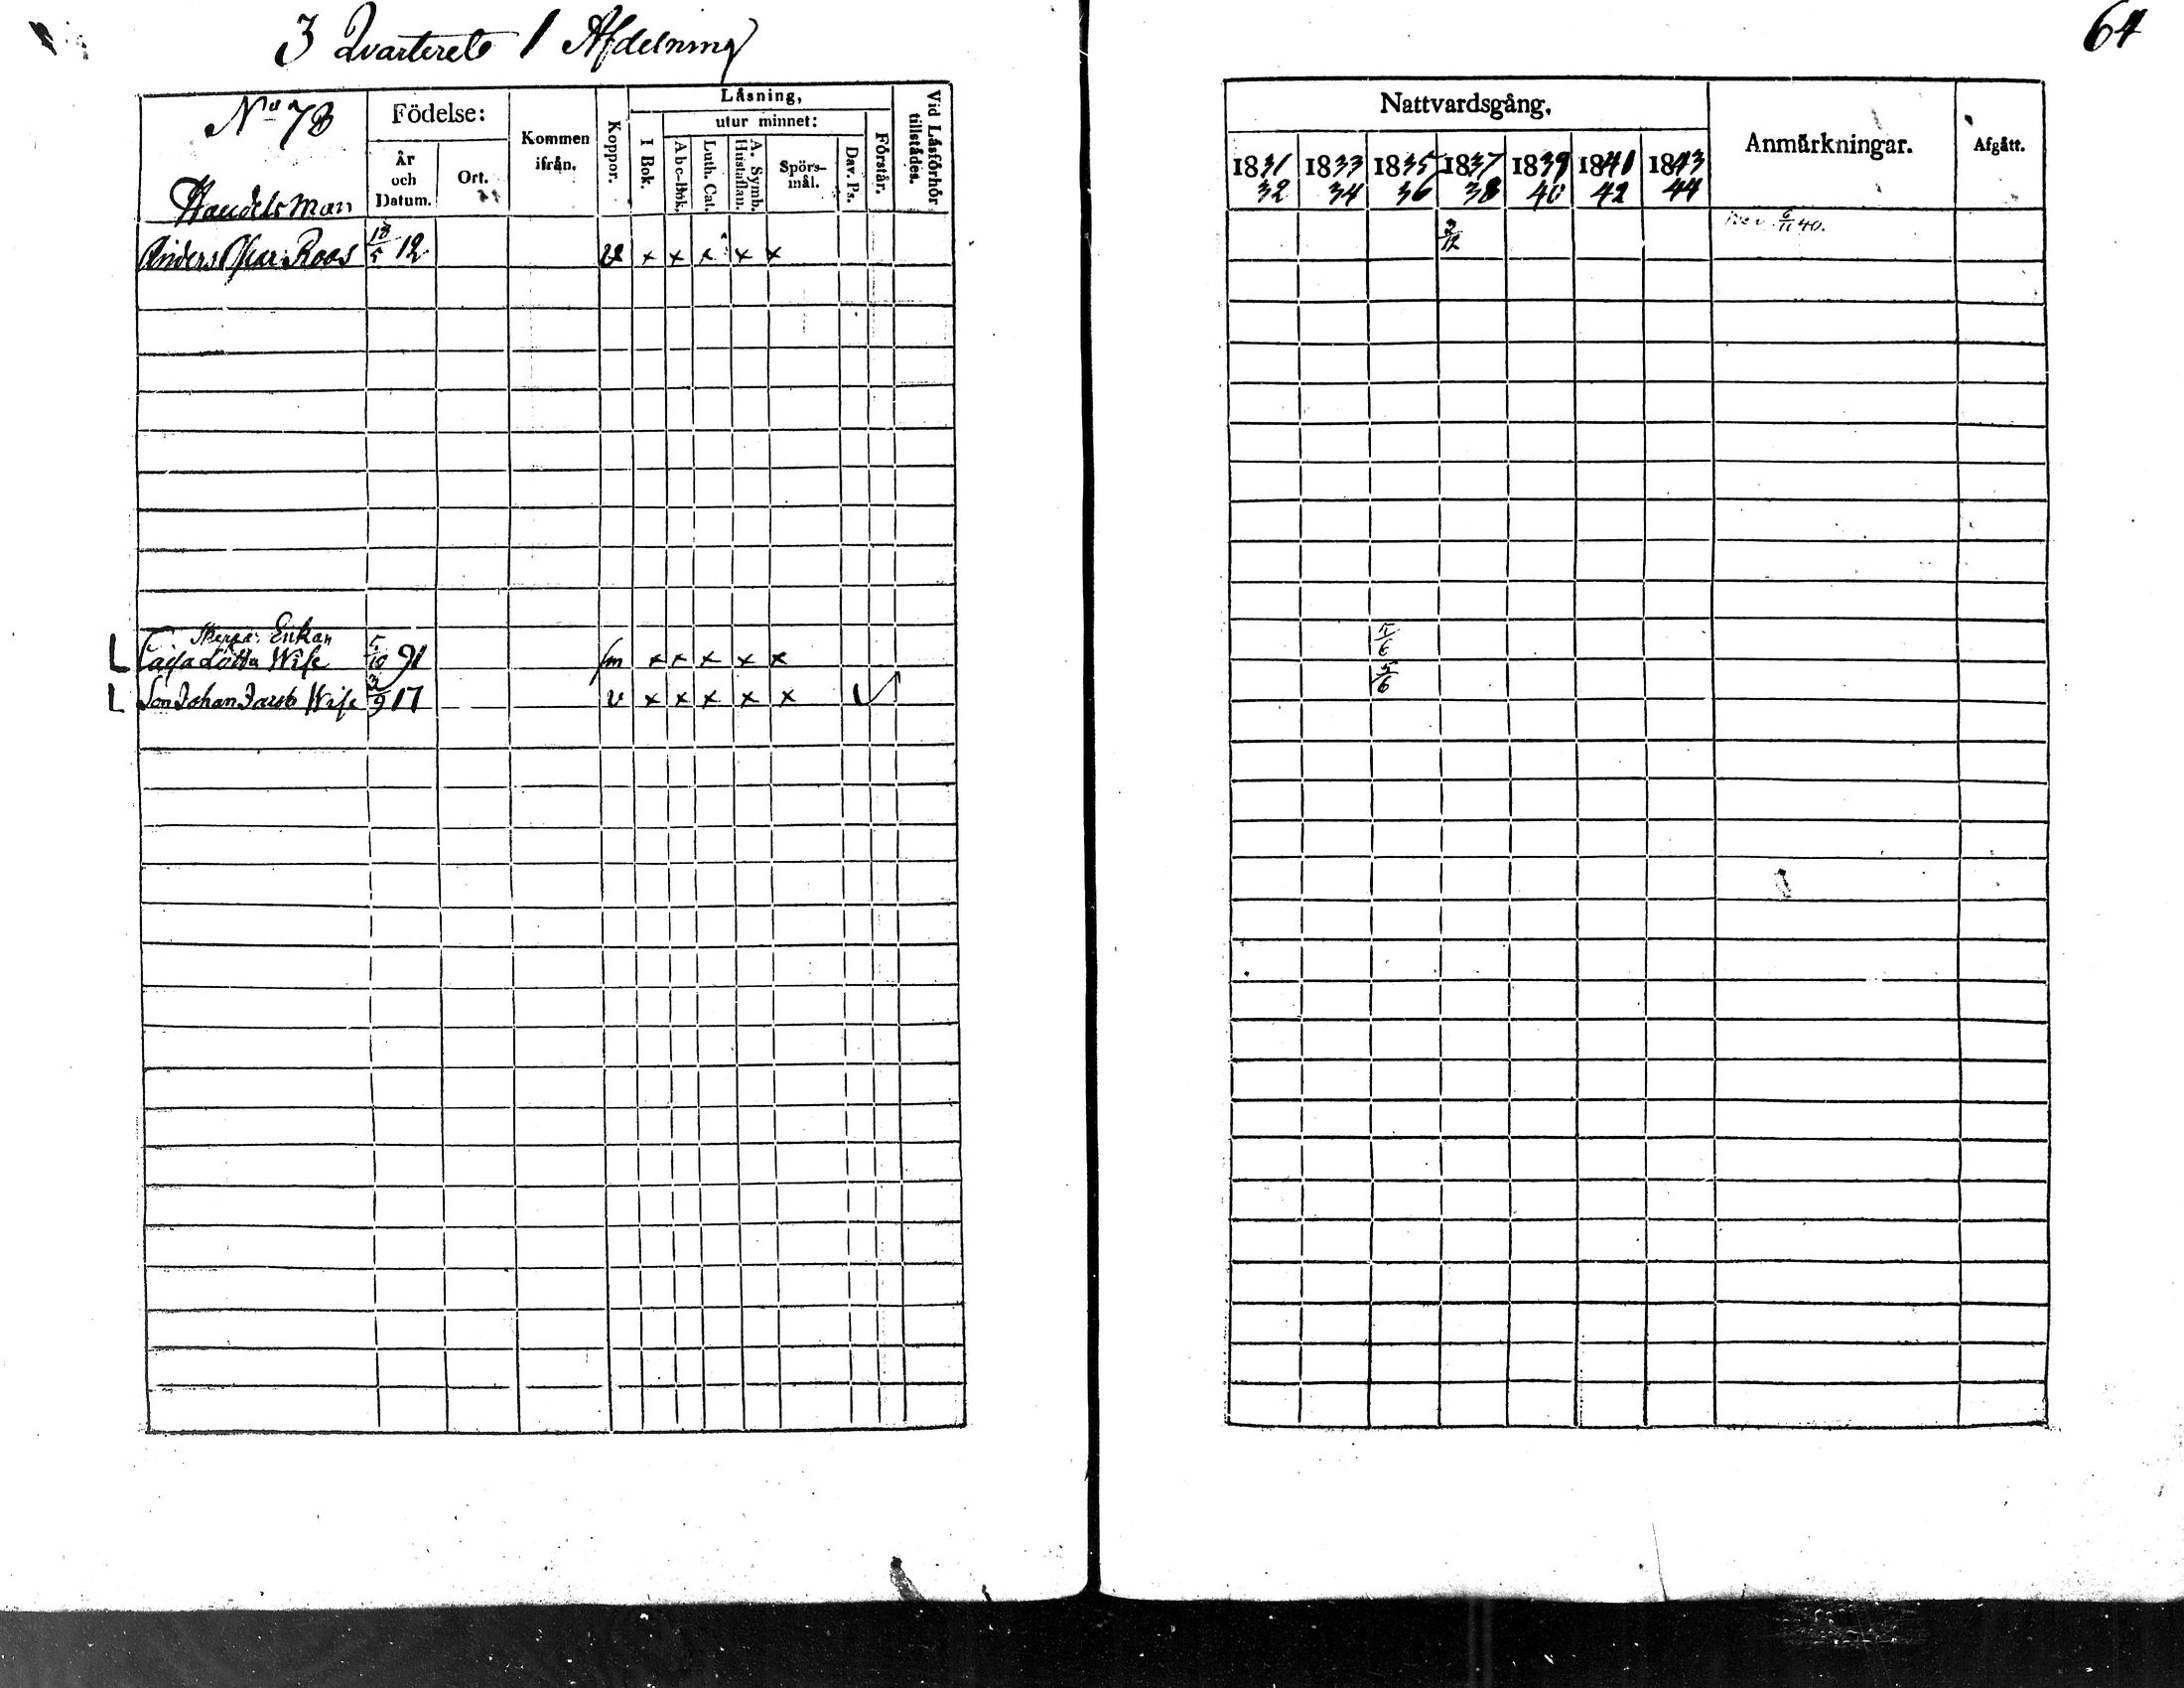 3 Qvarteret 1 Afdelning
64
No 73
Födelse:
År och Datum.
Ort.
Kommen ifrån.
Koppor.
Läsning,
I Bok.
utur minnet:
Abc-Bok.
Luth. Cat.
A. Symb. Hustaflan.
Spörsmål.
Dav. Ps.
Förstår.
Vid Läsförhör tillstädes.
Nattvardsgång,
1831 32
1833 34
1835 36
1837 38
1839 40
1841 42
1843 44
Anmärkningar.
Afgått.
Handelsman
Anders Oscar Roos 18/5 12 v x x x x x 2/12 6/11 40.
Enkan
L Cajsa Lotta Wise 5/10 91 fm x x x x x 5/6
L Son Johan Jacob Wise 3/9 17 v x x x x x 5/6